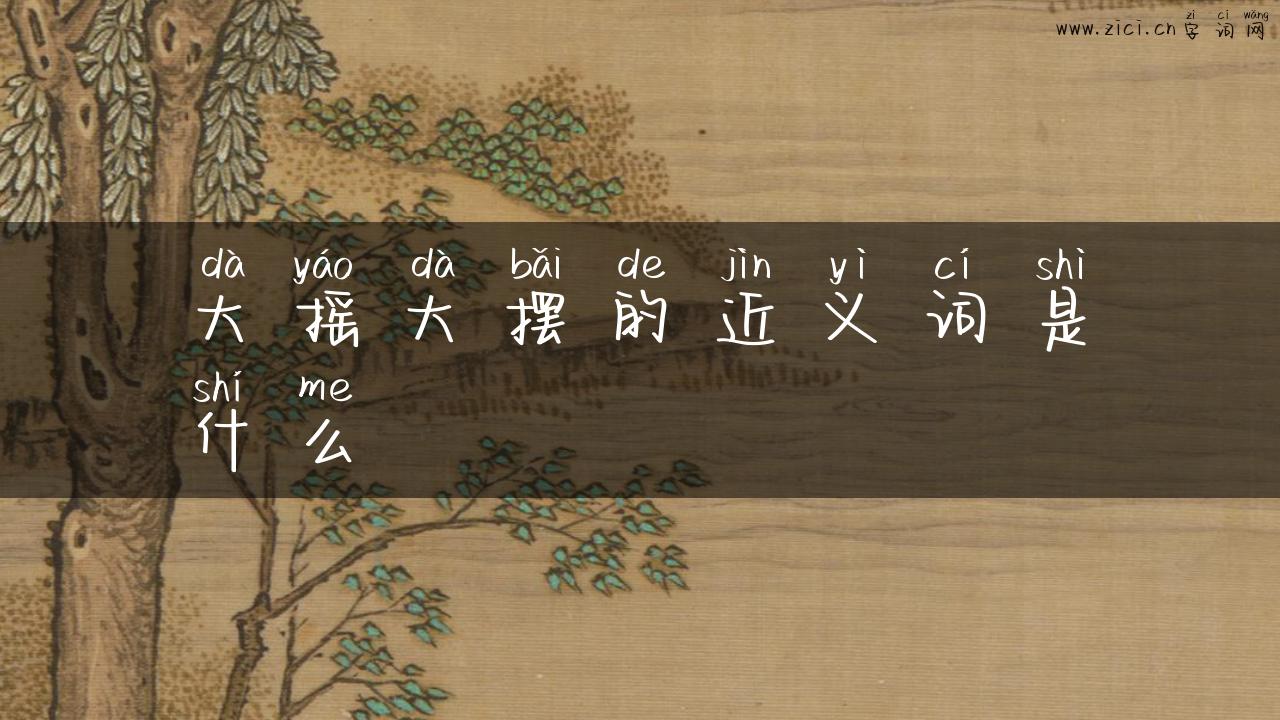 zì cí wǎng
www.zici.cn 字词网
dà yáo dà bǎi de jìn yì cí shì
大摇大摆的近义词是
shí me
什么